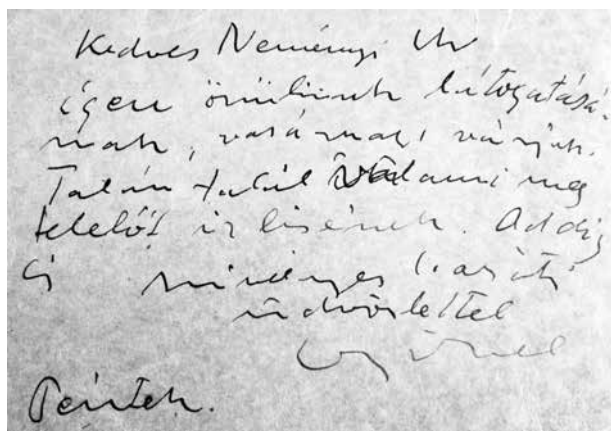 Kedves Neményi Úr
igen örülünk látogatásá-
nak, vasárnap várjuk.
Talán talál valami meg
felelőt izlésének. Addig
is szívélyes baráti
üdvözlettel
Péntek.